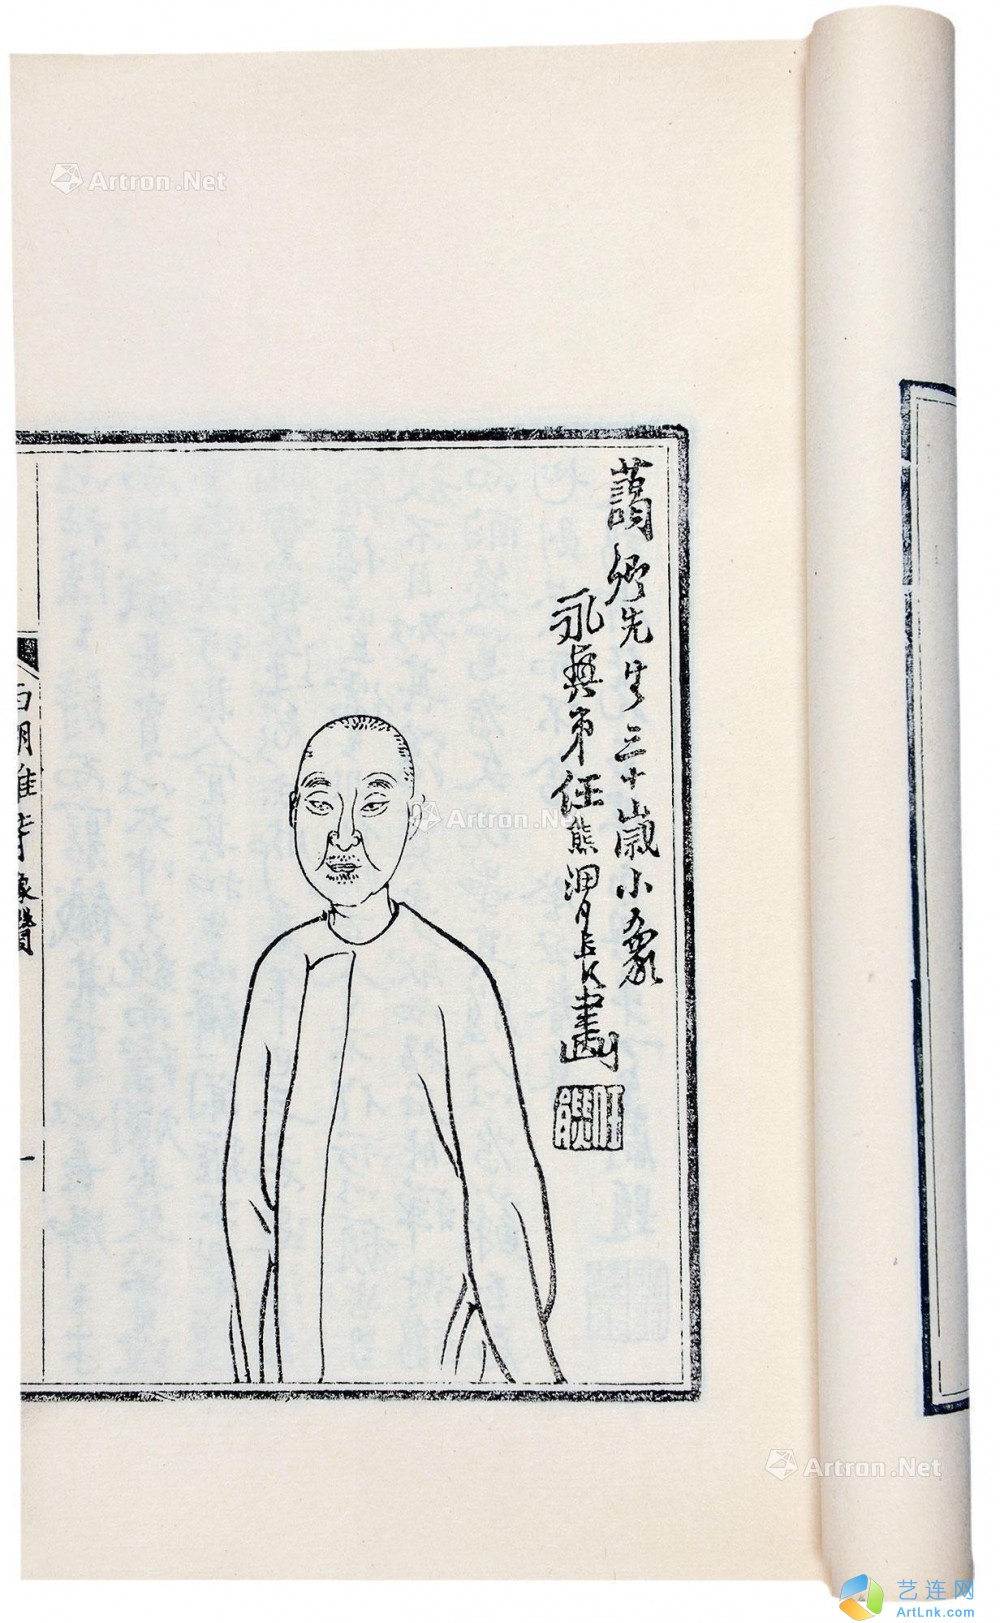 藹卿先生三十歲小象
永興弟任熊渭長畫
任熊
西湖雜詩 像贊
一
Artron.Net
Artron.Net
Artron.Net
艺连网
ArtLnk.com